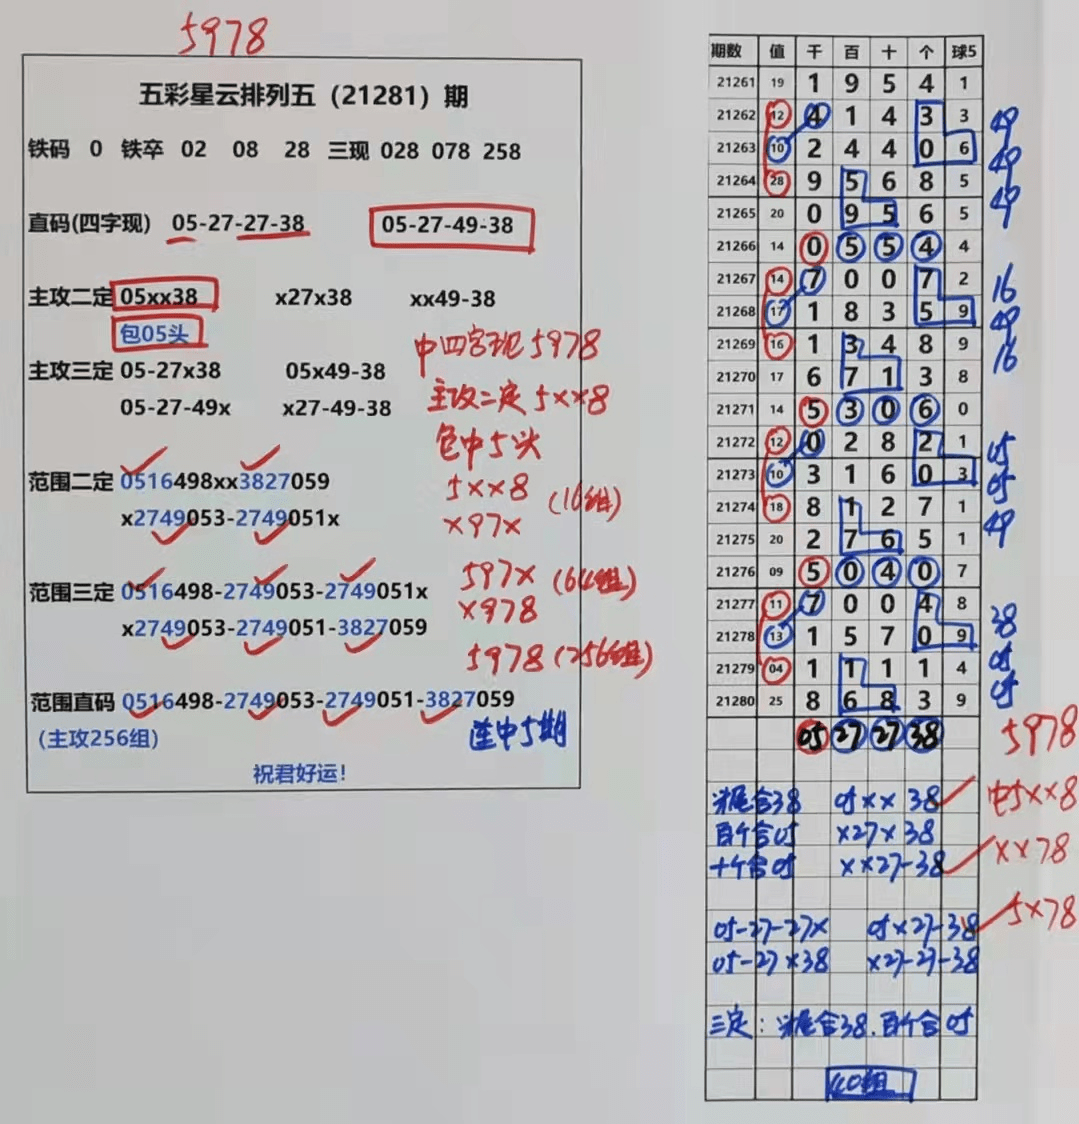 5978
五彩星云排列五（21281）期
铁码 0 铁卒 02 08 28 三现 028 078 258
直码(四字现) 05-27-27-38 05-27-49-38
主攻二定 05xx38 x27x38 xx49-38
包05头
主攻三定 05-27x38 05x49-38
05-27-49x x27-49-38
中四字现5978
主攻二定5xx8
包中5头
范围二定 0516498xx3827059
x2749053-2749051x
5xx8 (16组)
x97x
范围三定 0516498-2749053-2749051x
x2749053-2749051-3827059
597x (64组)
x978
5978 (256组)
范围直码 0516498-2749053-2749051-3827059
(主攻256组)
连中5期
祝君好运！
期数 值 千 百 十 个 球5
21261 19 1 9 5 4 1
21262 12 4 1 4 3 3 49
21263 10 2 4 4 0 6 49
21264 28 9 5 6 8 5 49
21265 20 0 9 5 6 5
21266 14 0 5 5 4 4
21267 14 7 0 0 7 2 16
21268 17 1 8 3 5 9 49
21269 16 1 3 4 8 9 16
21270 17 6 7 1 3 8
21271 14 5 3 0 6 0
21272 12 0 2 8 2 1 05
21273 10 3 1 6 0 3 05
21274 18 8 1 2 7 1 49
21275 20 2 7 6 5 1
21276 09 5 0 4 0 7
21277 11 7 0 0 4 8 38
21278 13 1 5 7 0 9 05
21279 04 1 1 1 1 4 05
21280 25 8 6 8 3 9
05 27 27 38 5978
尾合38 05xx38 中5xx8
百个合05 x27x38
十个合05 xx27-38 xx78
05-27-27x 05x27-38 5x78
05-27x38 x27-27-38
三定：尾合38.百个合05
40组